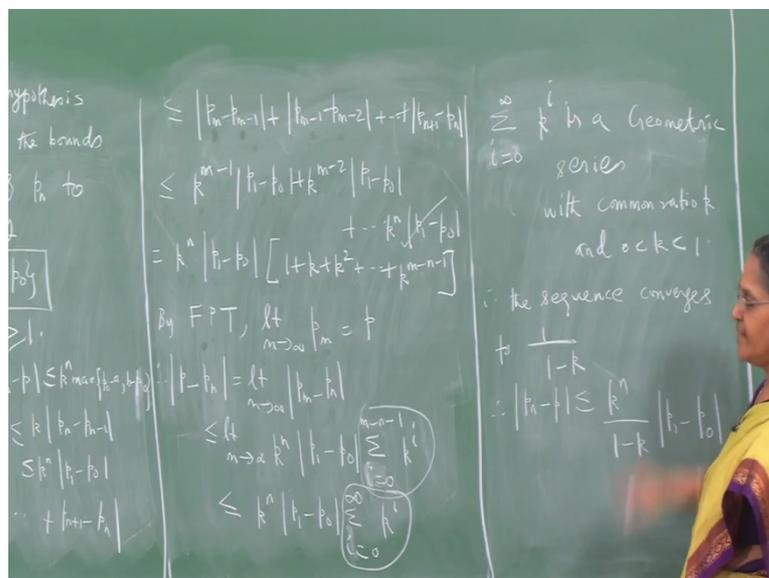 hypothesis
the bounds
p_n to
p_0}
≥ 1.
-p| ≤ k^n max{p_0-a, b-p_0}
≤ k|p_n-p_{n-1}|
≤ k^n |p_1-p_0|
... + |p_{n+1}-p_n|
≤ |p_m-p_{m-1}|+|p_{m-1}-p_{m-2}|+...+|p_{n+1}-p_n|
≤ k^{m-1}|p_1-p_0|+k^{m-2}|p_1-p_0|
+... k^n|p_1-p_0|
= k^n |p_1-p_0| [1+k+k^2+...+k^{m-n-1}]
By FPT, lt_{m→∞} p_m = p
∴ |p-p_n| = lt_{m→∞} |p_m-p_n|
≤ lt_{m→∞} k^n |p_1-p_0| Σ_{i=0}^{m-n-1} k^i
≤ k^n |p_1-p_0| Σ_{i=0}^{∞} k^i
Σ_{i=0}^{∞} k^i is a Geometric
series
with common ratio k
and 0<k<1.
∴ the sequence converges
to 1/(1-k)
∴ |p_n-p| ≤ k^n/(1-k) |p_1-p_0|